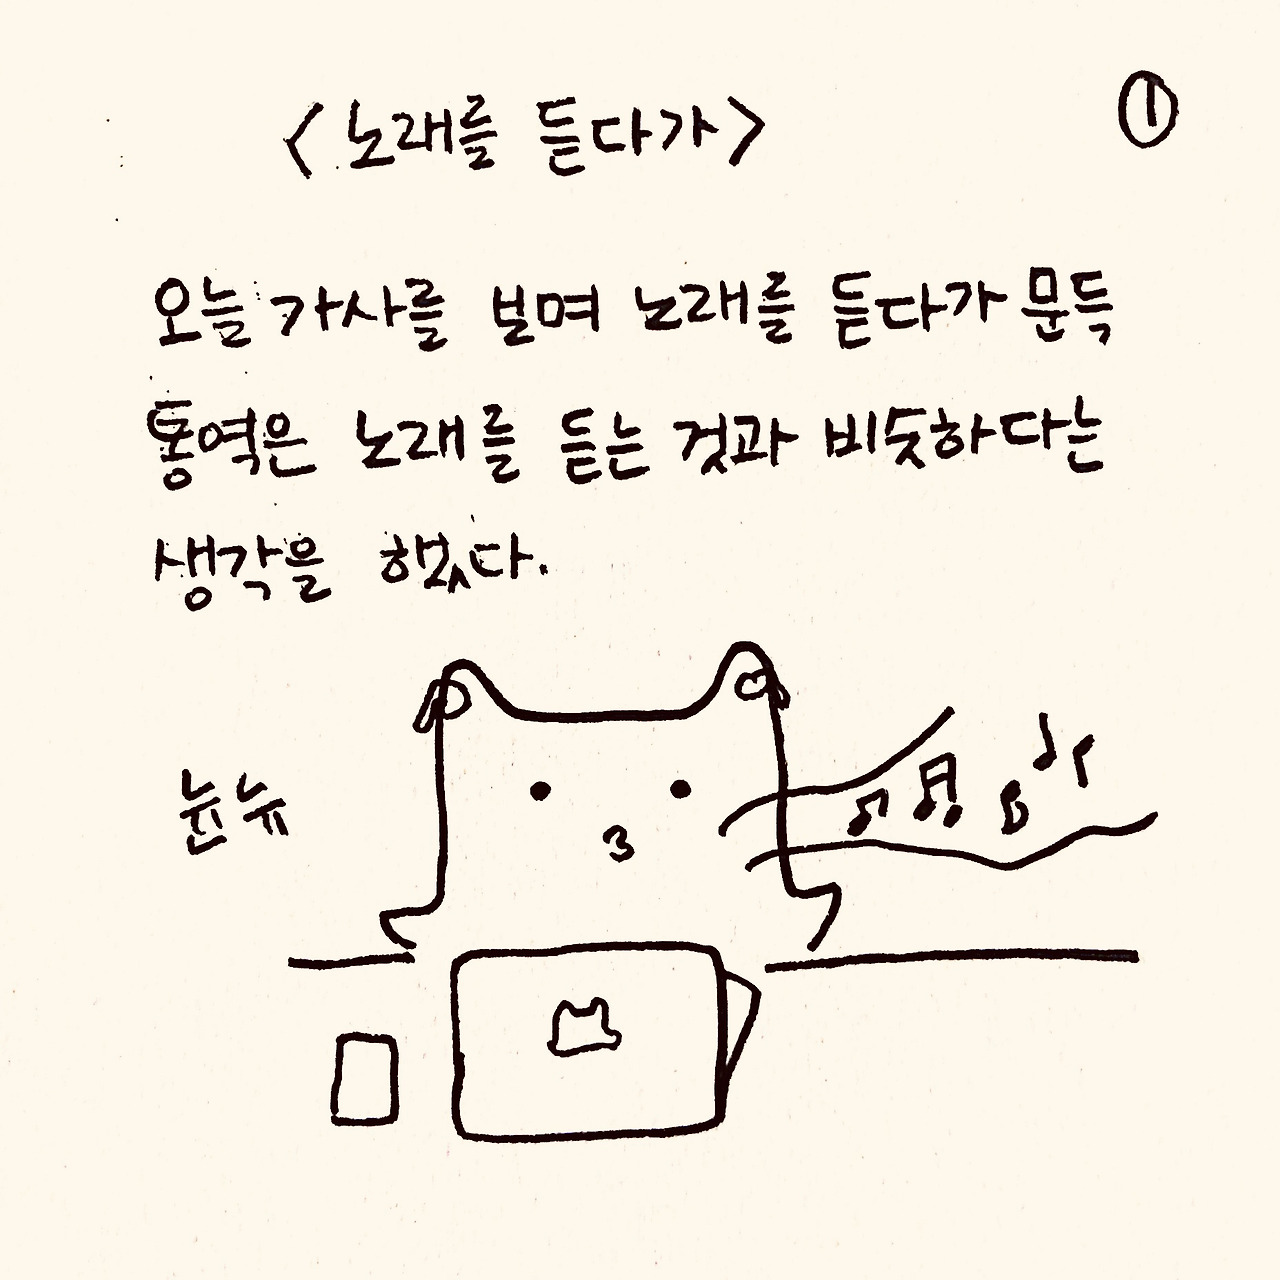 <노래를 듣다가>
①
오늘 가사를 보며 노래를 듣다가 문득
통역은 노래를 듣는 것과 비슷하다는
생각을 했다.
뉸뉴